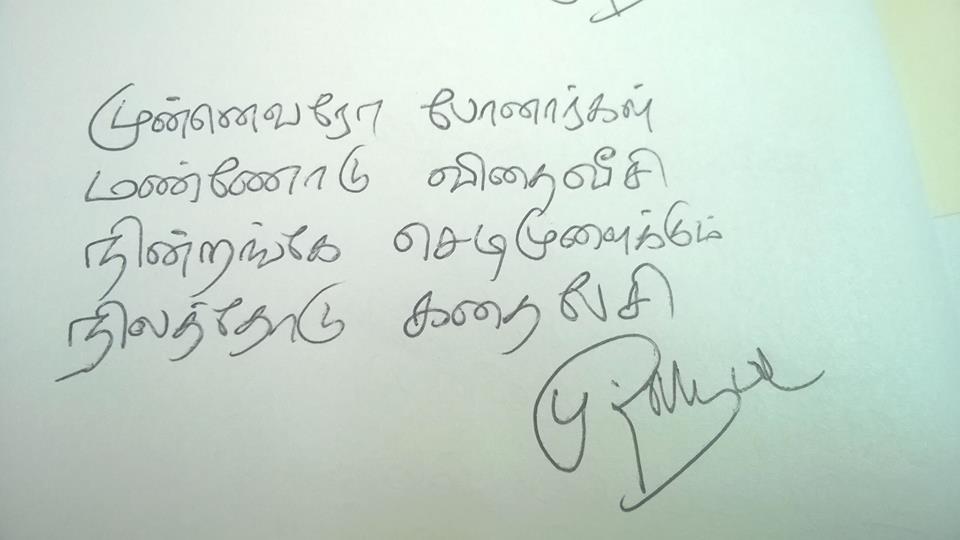 முன்னெவரோ போனார்கள்
மண்ணோடு விதைவீசி
நின்றங்கே செடிமுளைக்கும்
நிலத்தோடு கதைபேசி